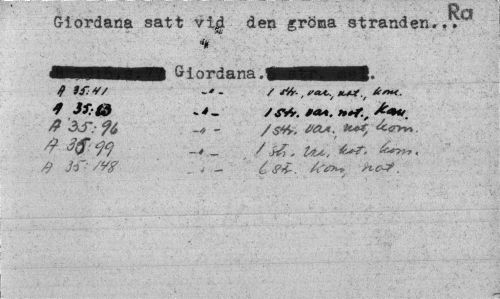 Ra
Giordana satt vid den gröna stranden...
Giordana.
A 35:41 -"- 1 str., var., not., kom.
A 35:63 -"- 1 str. var. not., kom.
A 35:96 -"- 1 str. var. not, kom.
A 35:99 -"- 1 str. var. not. kom.
A 35:148 -"- 6 str. kom, not.